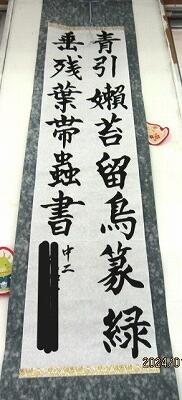 青引嬾苔留鳥篆緑
垂残葉帯蟲書
中二
2024/0